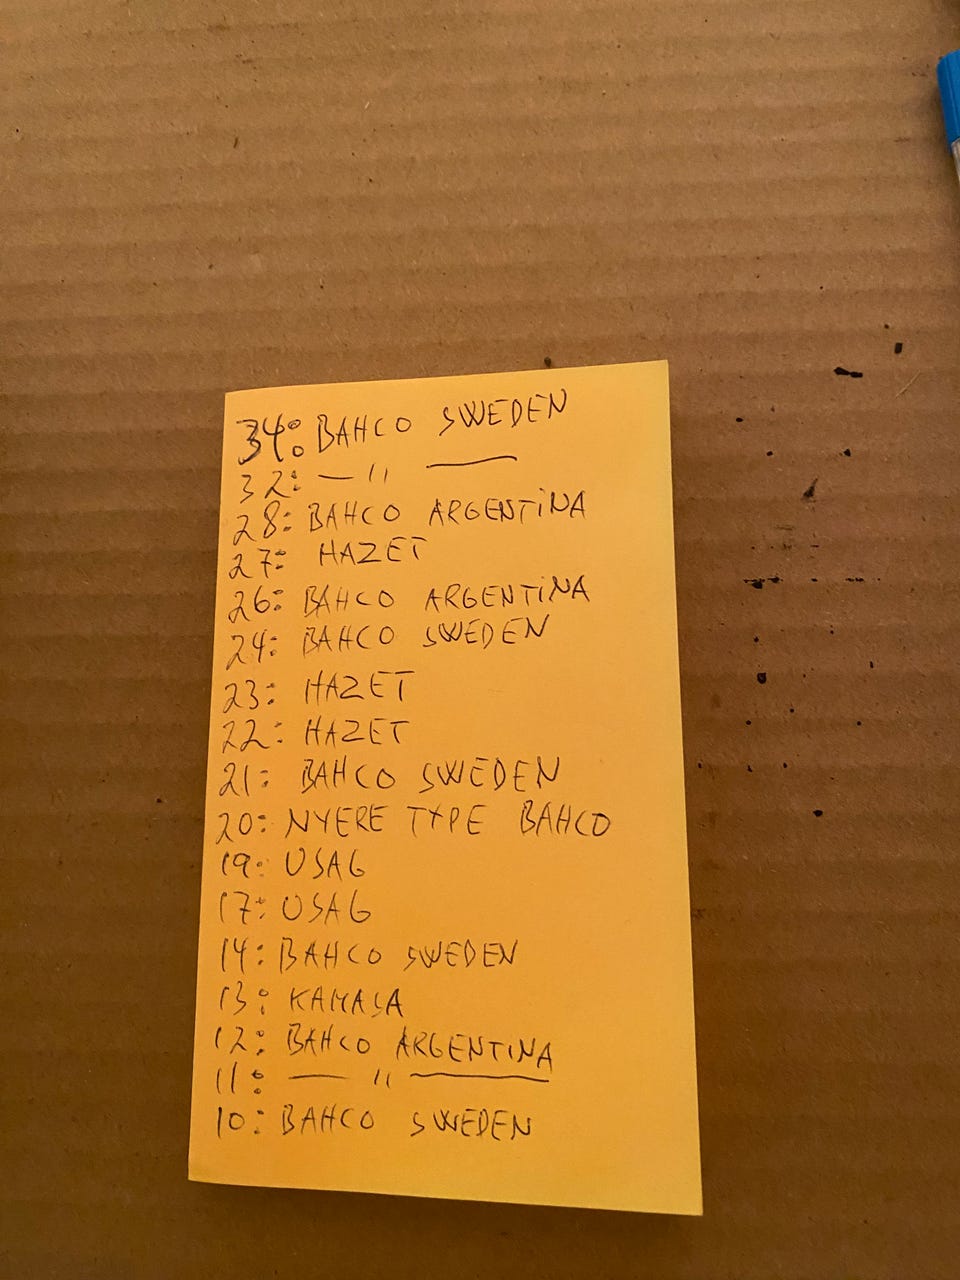 34: BAHCO SWEDEN
32: — " —
28: BAHCO ARGENTINA
27: HAZET
26: BAHCO ARGENTINA
24: BAHCO SWEDEN
23: HAZET
22: HAZET
21: BAHCO SWEDEN
20: NYERE TYPE BAHCO
19: USAG
17: USAG
14: BAHCO SWEDEN
13: KAMASA
12: BAHCO ARGENTINA
11: — " —
10: BAHCO SWEDEN